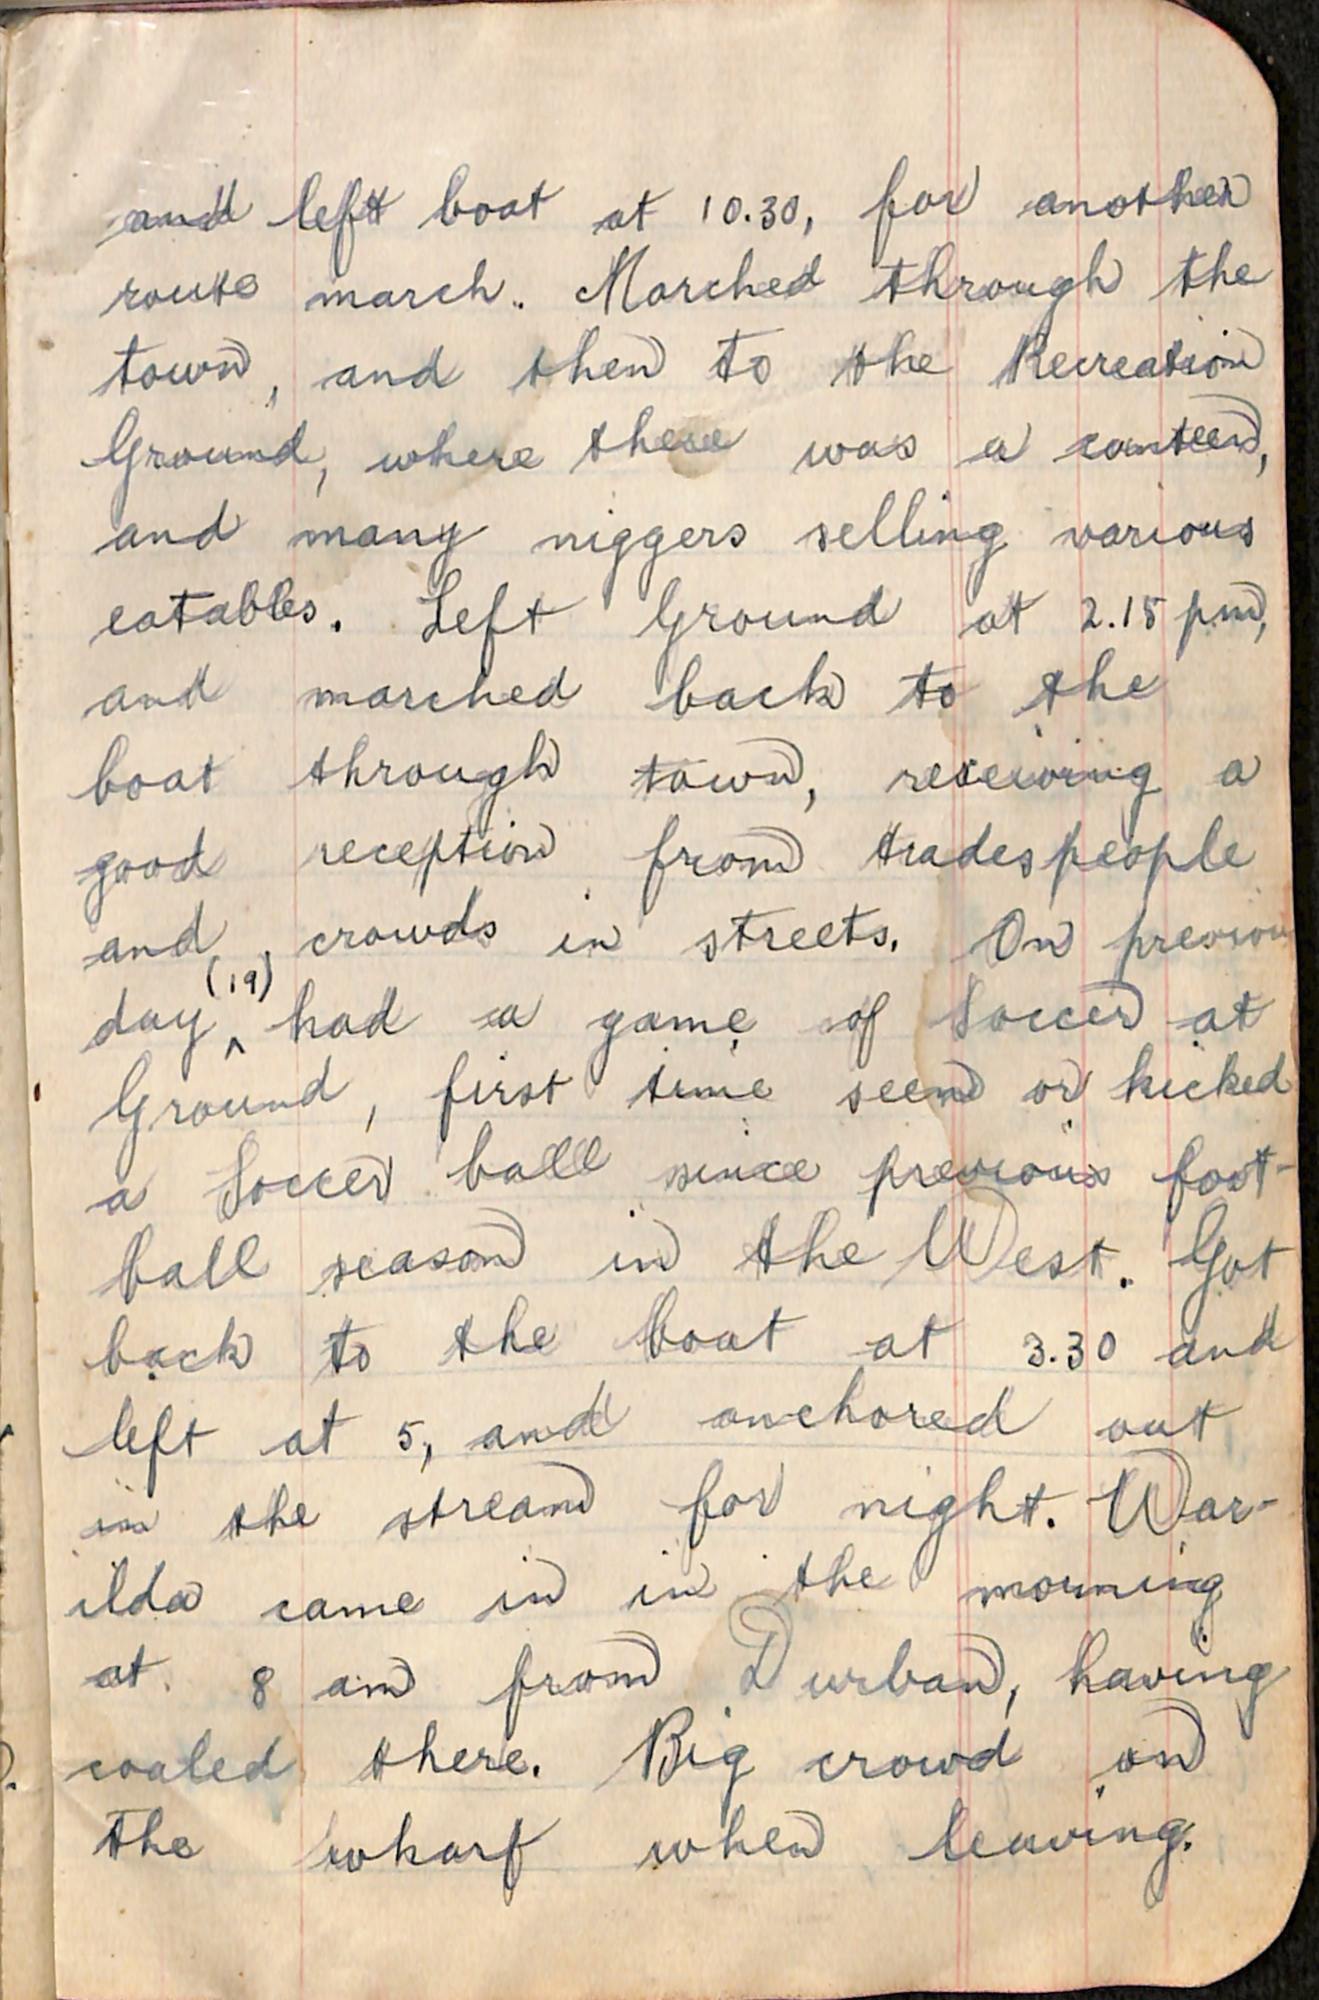 and left boat at 10.30, for another
route march. Marched through the
town, and then to the Recreation
Ground, where there was a canteen,
and many niggers selling various
eatables. Left Ground at 2.15 pm,
and marched back to the
boat through town, receiving a
good reception from tradespeople
and crowds in streets. On previou
day ^ (19) had a game of Soccer at
Ground, first time seen or kicked
a Soccer ball since previous foot-
ball season in the West. Got
back to the boat at 3.30 and
left at 5, and anchored out
in the stream for night. War-
ilda came in in the morning
at 8 am from Durban, having
coaled there. Big crowd on
the wharf when leaving.